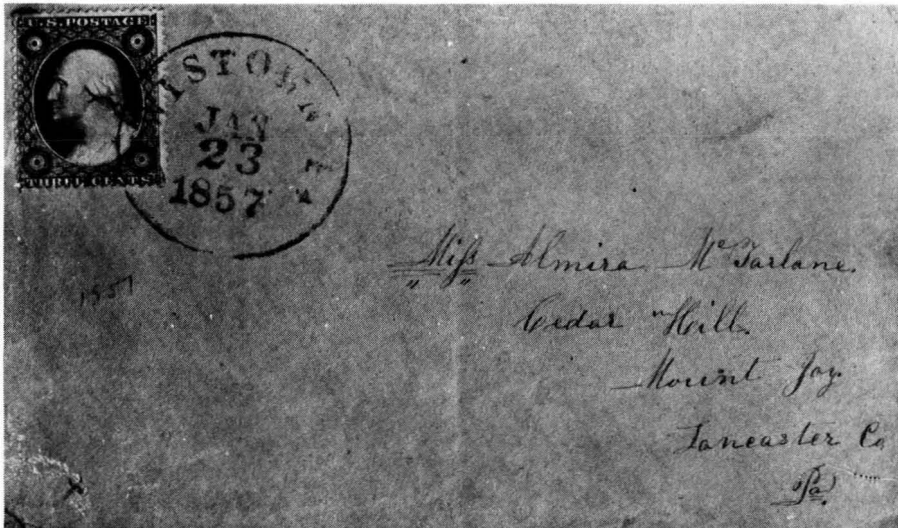 U.S. POSTAGE
THREE CENTS
JAN
23
1857
1857
Miss Almira McFarlane.
Cedar Hill.
Mount Joy.
Lancaster Co
Pa